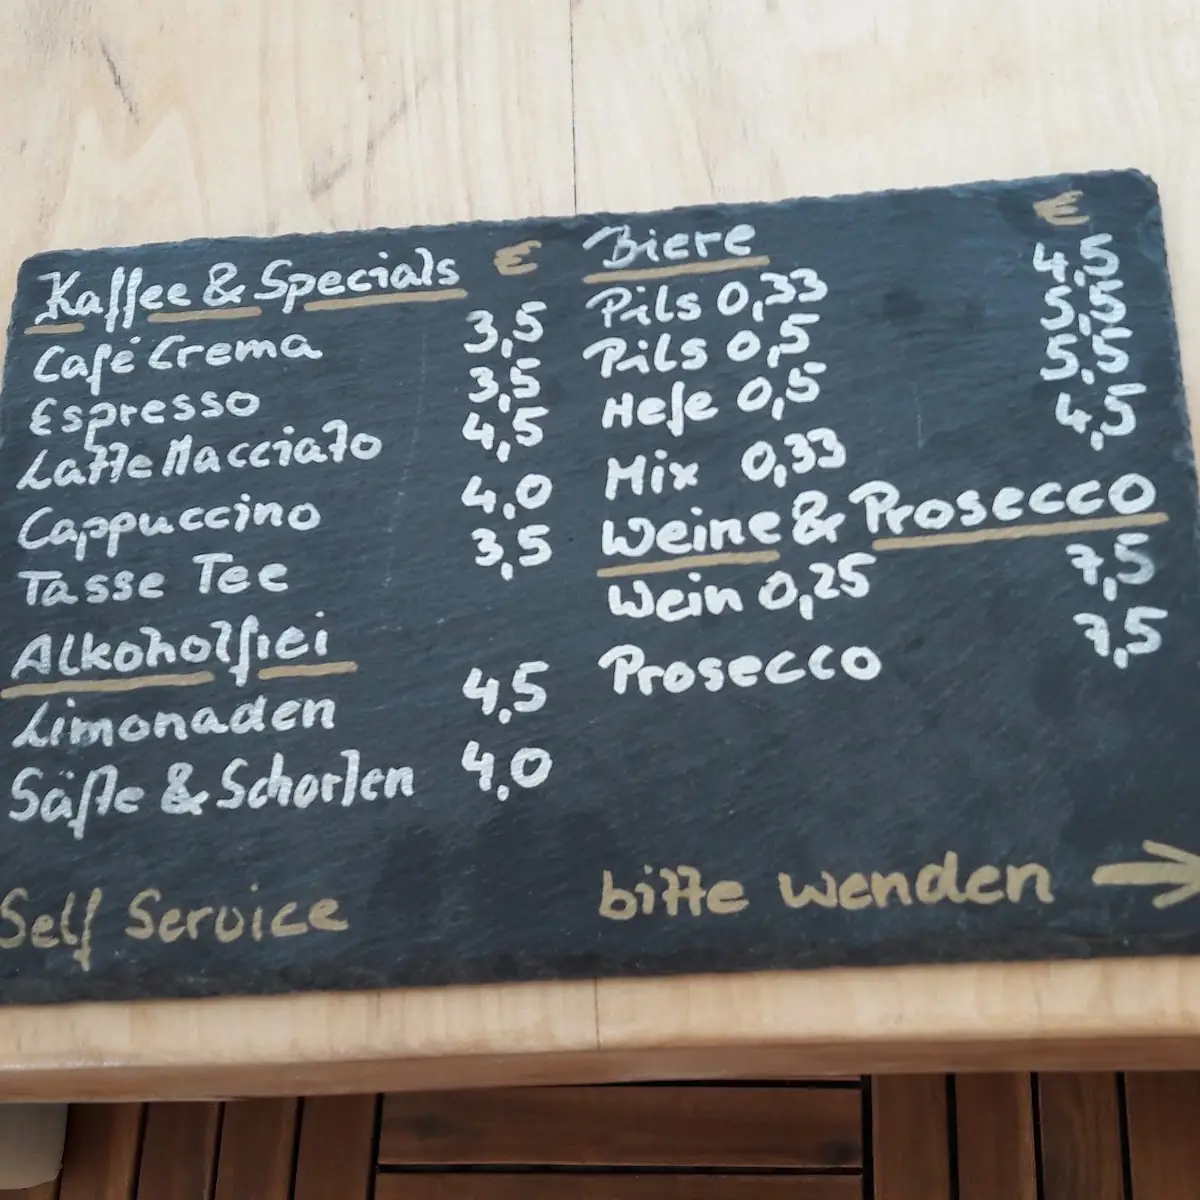 Kaffee & Specials €
Café Crema 3,5
Espresso 3,5
Latte Macciato 4,5
Cappuccino 4,0
Tasse Tee 3,5
Alkoholfrei
Limonaden 4,5
Säfte & Schorlen 4,0
Self Service
Biere €
Pils 0,33 4,5
Pils 0,5 5,5
Hefe 0,5 5,5
Mix 0,33 4,5
Weine & Prosecco
Wein 0,25 7,5
Prosecco 7,5
bitte wenden →